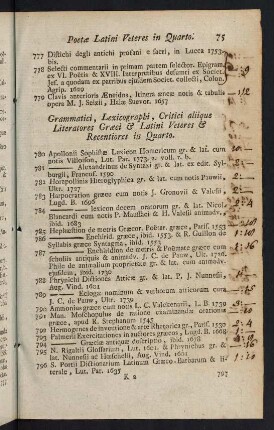 Poetæ Latini Veteres in Quarto. 75
777 Distichi degli antichi profani e sacri, in Lucca 1753
bis.
778 Selecti commentarii in primam partem selector. Epigram.
ex VI. Poëtis & XVIII. Interpretibus desumti ex Societ.
Jes. a quodam ex patribus ejusdem Societ. collecti, Colon.
Agrip. 1609
779 Clavis anterioris Æneidos, itinera æneæ notis & tabulis
opera M. J. Seizii, Halæ Suevor. 1657
Grammatici, Lexicographi, Critici aliique
Literatores Græci & Latini Veteres &
Recentiores in Quarto.
780 Apollonii Sophistæ Lexicon Homericum gr. & lat. cum
notis Villoison, Lut. Par. 1773. 2 voll. r. b.
781 Alexandrum de Syntaxi gr. & lat. ex edit. Sylburgii,
Francof. 1590
782 Horapollinis Hieroglyphica gr. & lat. cum notis Pauwii,
Ultr. 1727
783 Harpocration græce cum notis J. Gronovii & Valesii,
Lugd. B. 1696
784 lexicon decem oratorum gr. & lat. Nicol.
Blancardi cum notis P. Maussaci & H. Valesii animadv.
ibid. 1683
785 Hephæstion de metris Græcor. Potsar. græce, Paris. 1553
786 Enchirid. græce, ibid. 1553. & R. Guillon de
Syllabis græce Syntagma, ibid. 1553
787 Enchiridion de metris & Poëmate græce cum
scholiis antiquis & animadv. J. C. de Pauw, Ulr. 1726.
Phile de animalium proprietate gr. & lat. cum animadv.
ejusdem, ibid. 1730
788 Phrynichi Dictiones Atticæ gr. & lat. P. J. Nunnesii,
Aug. Vind. 1601
789 Eclogæ nominum & verborum atticorum cura
J. C. de Pauw, Ultr. 1739
790 Ammonius græce cum notis L. C. Valckenarii, L. B. 1739
791 Man. Moschopulus de ratione examinandæ orationis
græce, apud R. Stephanum 1545
792 Hermogenes de inventione & arte Rhetorica gr. Paris. 1530
793 Palmerii Exercitationes in autores græcos, Lugd. B. 1668
794 Græciæ antiquæ descriptio, ibid. 1678
795 N. Rigaltii Glossarium, Lut. 1601. & Phrynichus gr. &
lat. Nunnesii ac Hœschelii, Aug. Vind. 1601
796 S. Portii Dictionarium Latinum Græco-Barbarum & literale,
Lut. Par. 1635
K 2 797